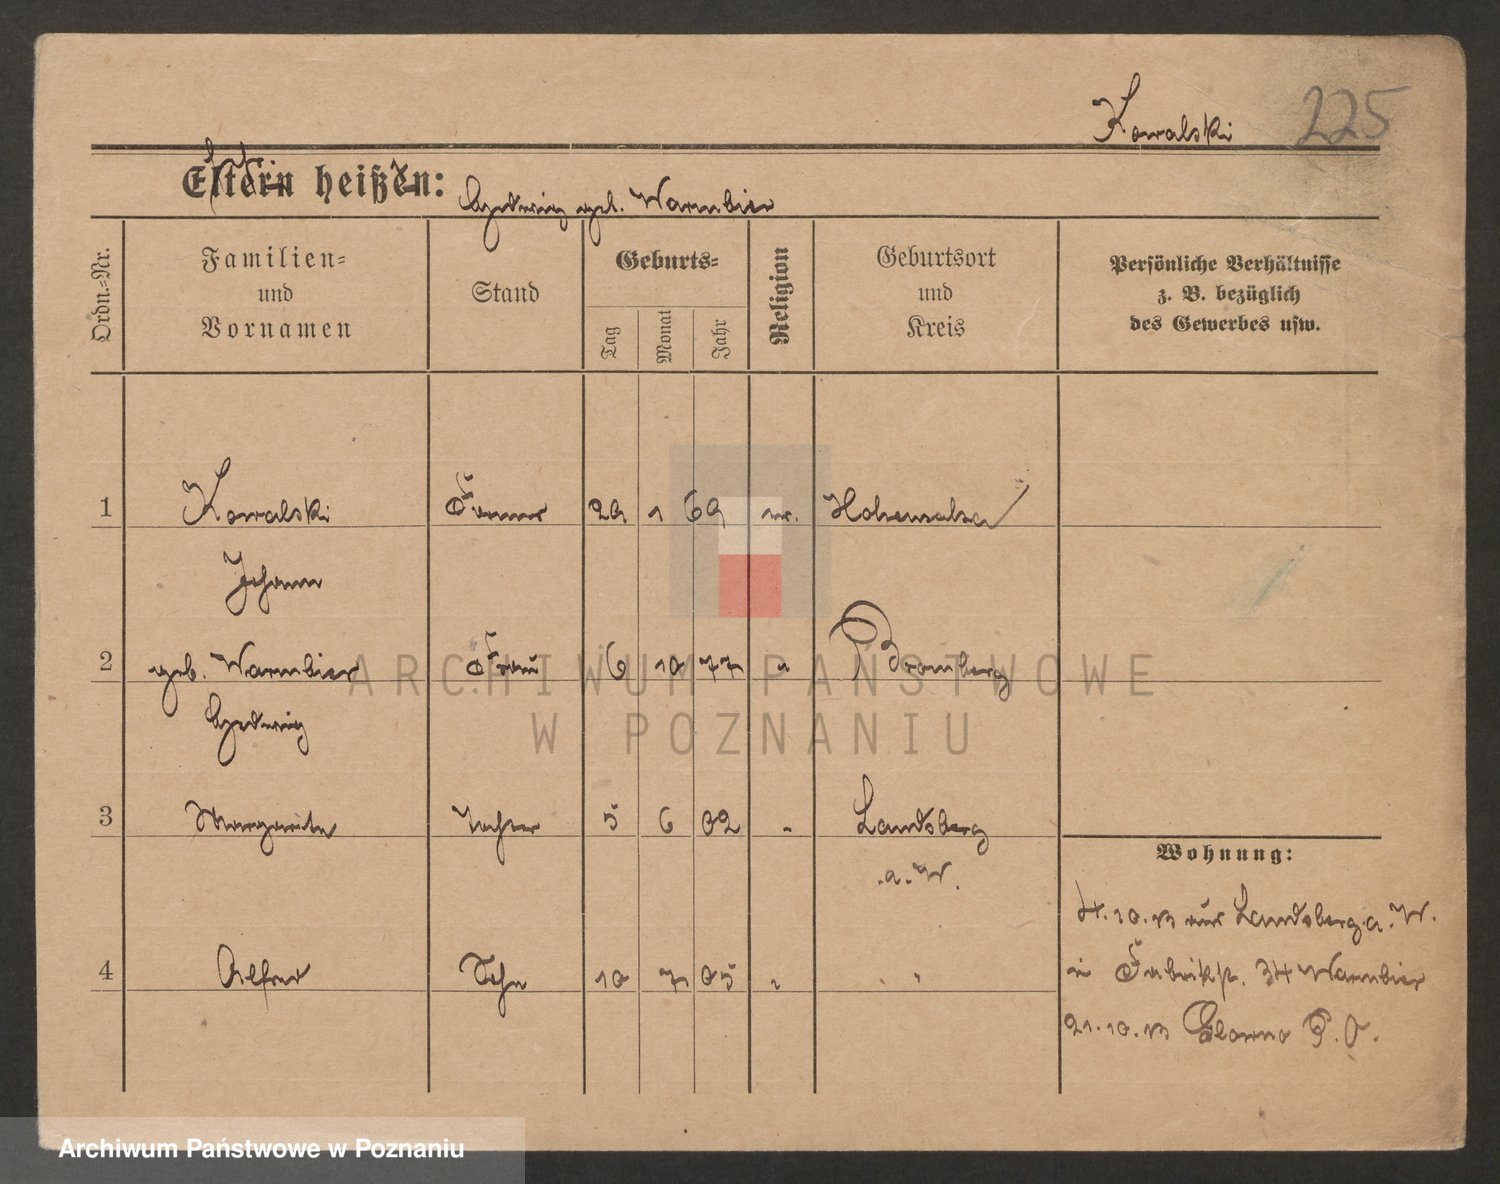 Kowalski 225
Eltern heißen:
Hedwig geb. Warmbier
Ordn.-Nr.
Familien-
und
Vornamen
Stand
Geburts-
Tag
Monat
Jahr
Religion
Geburtsort
und
Kreis
Persönliche Verhältnisse
z. B. bezüglich
des Gewerbes usw.
1 Kowalski 29 1 69 Hohensalza
Johann
2 geb. Warmbier Frau 6 10 77 " Bromberg
Hedwig
3 Margarete Tochter 5 6 02 " Landsberg
a. W.
4 Alfred Sohn 10 7 05 " "
Wohnung:
4.10.13 aus Landsberg a. W.
in Fabrikstr. 34 Warmbier
21.10.13 P. O.
ARCHIWUM PAŃSTWOWE
W POZNANIU
Archiwum Państwowe w Poznaniu